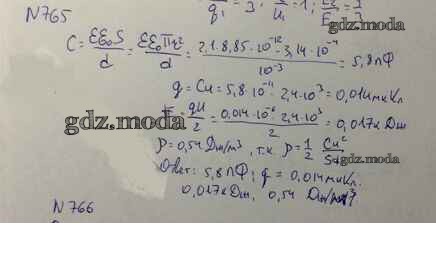 q₁ = 3; U₁ = 1; E₀ = 3
gdz.moda
N765
C = εε₀S/d = εε₀πr²/d = 2,1·8,85·10⁻¹²·3,14·10⁻⁴/10⁻³ = 5,8пФ
q = Cu = 5,8·10⁻¹¹·2,4·10³ = 0,014мкКл
gdz.moda = qU/2 = 0,014·10⁻⁶·2,4·10³/2 = 0,017кДж
p = 0,54Дж/м³, т.к. p = 1/2 Cu²/Sd
gdz.moda
Ответ: 5,8пФ; q = 0,014мкКл.
0,017кДж, 0,54 Дж/м³
N766